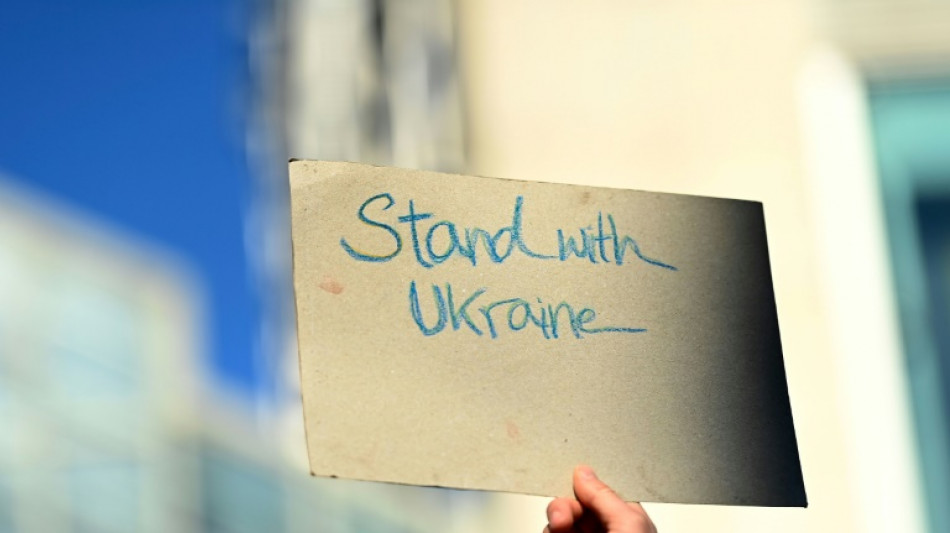 Stand with
Ukraine